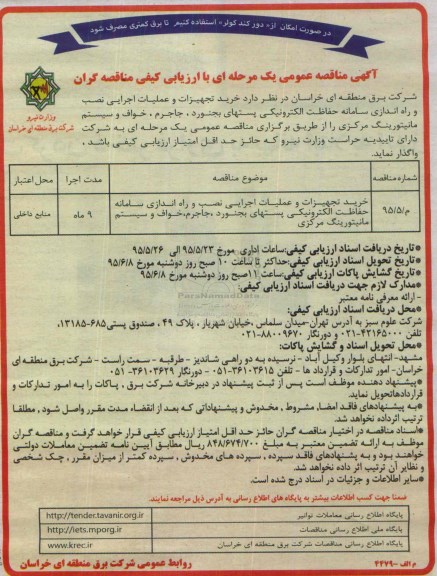 در صورت امکان از «دور کند کولر» استفاده کنیم تا برق کمتری مصرف شود
آگهی مناقصه عمومی یک مرحله ای با ارزیابی کیفی مناقصه گران
وزارت نیرو
شرکت برق منطقه ای خراسان
شرکت برق منطقه ای خراسان در نظر دارد خرید تجهیزات و عملیات اجرایی نصب
و راه اندازی سامانه حفاظت الکترونیکی پستهای بجنورد ، جاجرم ، خواف و سیستم
مانیتورینگ مرکزی را از طریق برگزاری مناقصه عمومی یک مرحله ای به شرکت
دارای تاییدیه حراست وزارت نیرو که حائز حد اقل امتیاز ارزیابی کیفی باشد ،
واگذار نماید.
شماره مناقصه موضوع مناقصه مدت اجرا محل اعتبار
م/۹۵/۵ خرید تجهیزات و عملیات اجرایی نصب و راه اندازی سامانه
حفاظت الکترونیکی پستهای بجنورد ،جاجرم،خواف و سیستم
مانیتورینگ مرکزی ۹ ماه منابع داخلی
*تاریخ دریافت اسناد ارزیابی کیفی:ساعات اداری مورخ ۹۵/۵/۲۳ الی ۹۵/۵/۲۶
*تاریخ تحویل اسناد ارزیابی کیفی:حداکثر تا ساعت ۱۰ صبح روز دوشنبه مورخ ۹۵/۶/۸
*تاریخ گشایش پاکات ارزیابی کیفی:ساعت ۱۱صبح روز دوشنبه مورخ ۹۵/۶/۸
*مدارک لازم جهت دریافت اسناد ارزیابی کیفی:
- ارائه معرفی نامه معتبر
ParsNamadData
*محل دریافت اسناد ارزیابی کیفی:
شرکت علوم سبز به آدرس تهران-میدان سلماس ،خیابان شهریار ، پلاک ۴۹ ، صندوق پستی۶۸۵-۱۳۱۸۵،
تلفن ۴۲۱۶۵۰۰۰-۰۲۱ و دورنگار ۸۸۰۰۹۶۷۰-۰۲۱
*محل تحویل اسناد و گشایش پاکات:
مشهد- انتهای بلوار وکیل آباد - نرسیده به دو راهی شاندیز - طرقبه - سمت راست - شرکت برق منطقه ای
خراسان- امور تدارکات و قرارداد ها - تلفن ۳۶۱۰۳۶۱۵-۰۵۱ - دورنگار ۳۶۱۰۳۶۲۹-۰۵۱
*پیشنهاد دهنده موظف است پس از ثبت پیشنهاد در دبیرخانه شرکت برق ، پاکات را به امور تدارکات و
قراردادهاتحویل نماید
*به پیشنهادهای فاقد امضا، مشروط ، مخدوش و پیشنهاداتی که بعد از انقضاء مدت مقرر واصل شود ، مطلقا
ترتیب اثرداده نخواهد شد.
*اسناد مناقصه در اختیار مناقصه گران حائز حد اقل امتیاز ارزیابی کیفی قرار خواهد گرفت و مناقصه گران
موظف به ارائه تضمین معتبر به مبلغ ۸۴۸/۶۷۴/۷۰۰ ریال مطابق آیین نامه تضمین معاملات دولتی
خواهند بود و به پشنهادهای فاقد سپرده ، سپرده های مخدوش ، سپرده کمتر از میزان مقرر ، چک شخصی
و نظایر آن ترتیب اثر داده نخواهد شد.
*سایر اطلاعات و جزئیات در اسناد درج شده است.
ضمنا جهت کسب اطلاعات بیشتر به پایگاه های اطلاع رسانی به آدرس ذیل مراجعه نمایند.
پایگاه اطلاع رسانی معاملات توانیر http://tender.tavanir.org.ir
پایگاه ملی اطلاع رسانی مناقصات http://iets.mporg.ir
پایگاه اطلاع رسانی مناقصات شرکت برق منطقه ای خراسان www.krec.ir
روابط عمومی شرکت برق منطقه ای خراسان
م الف -۴۴۷۹